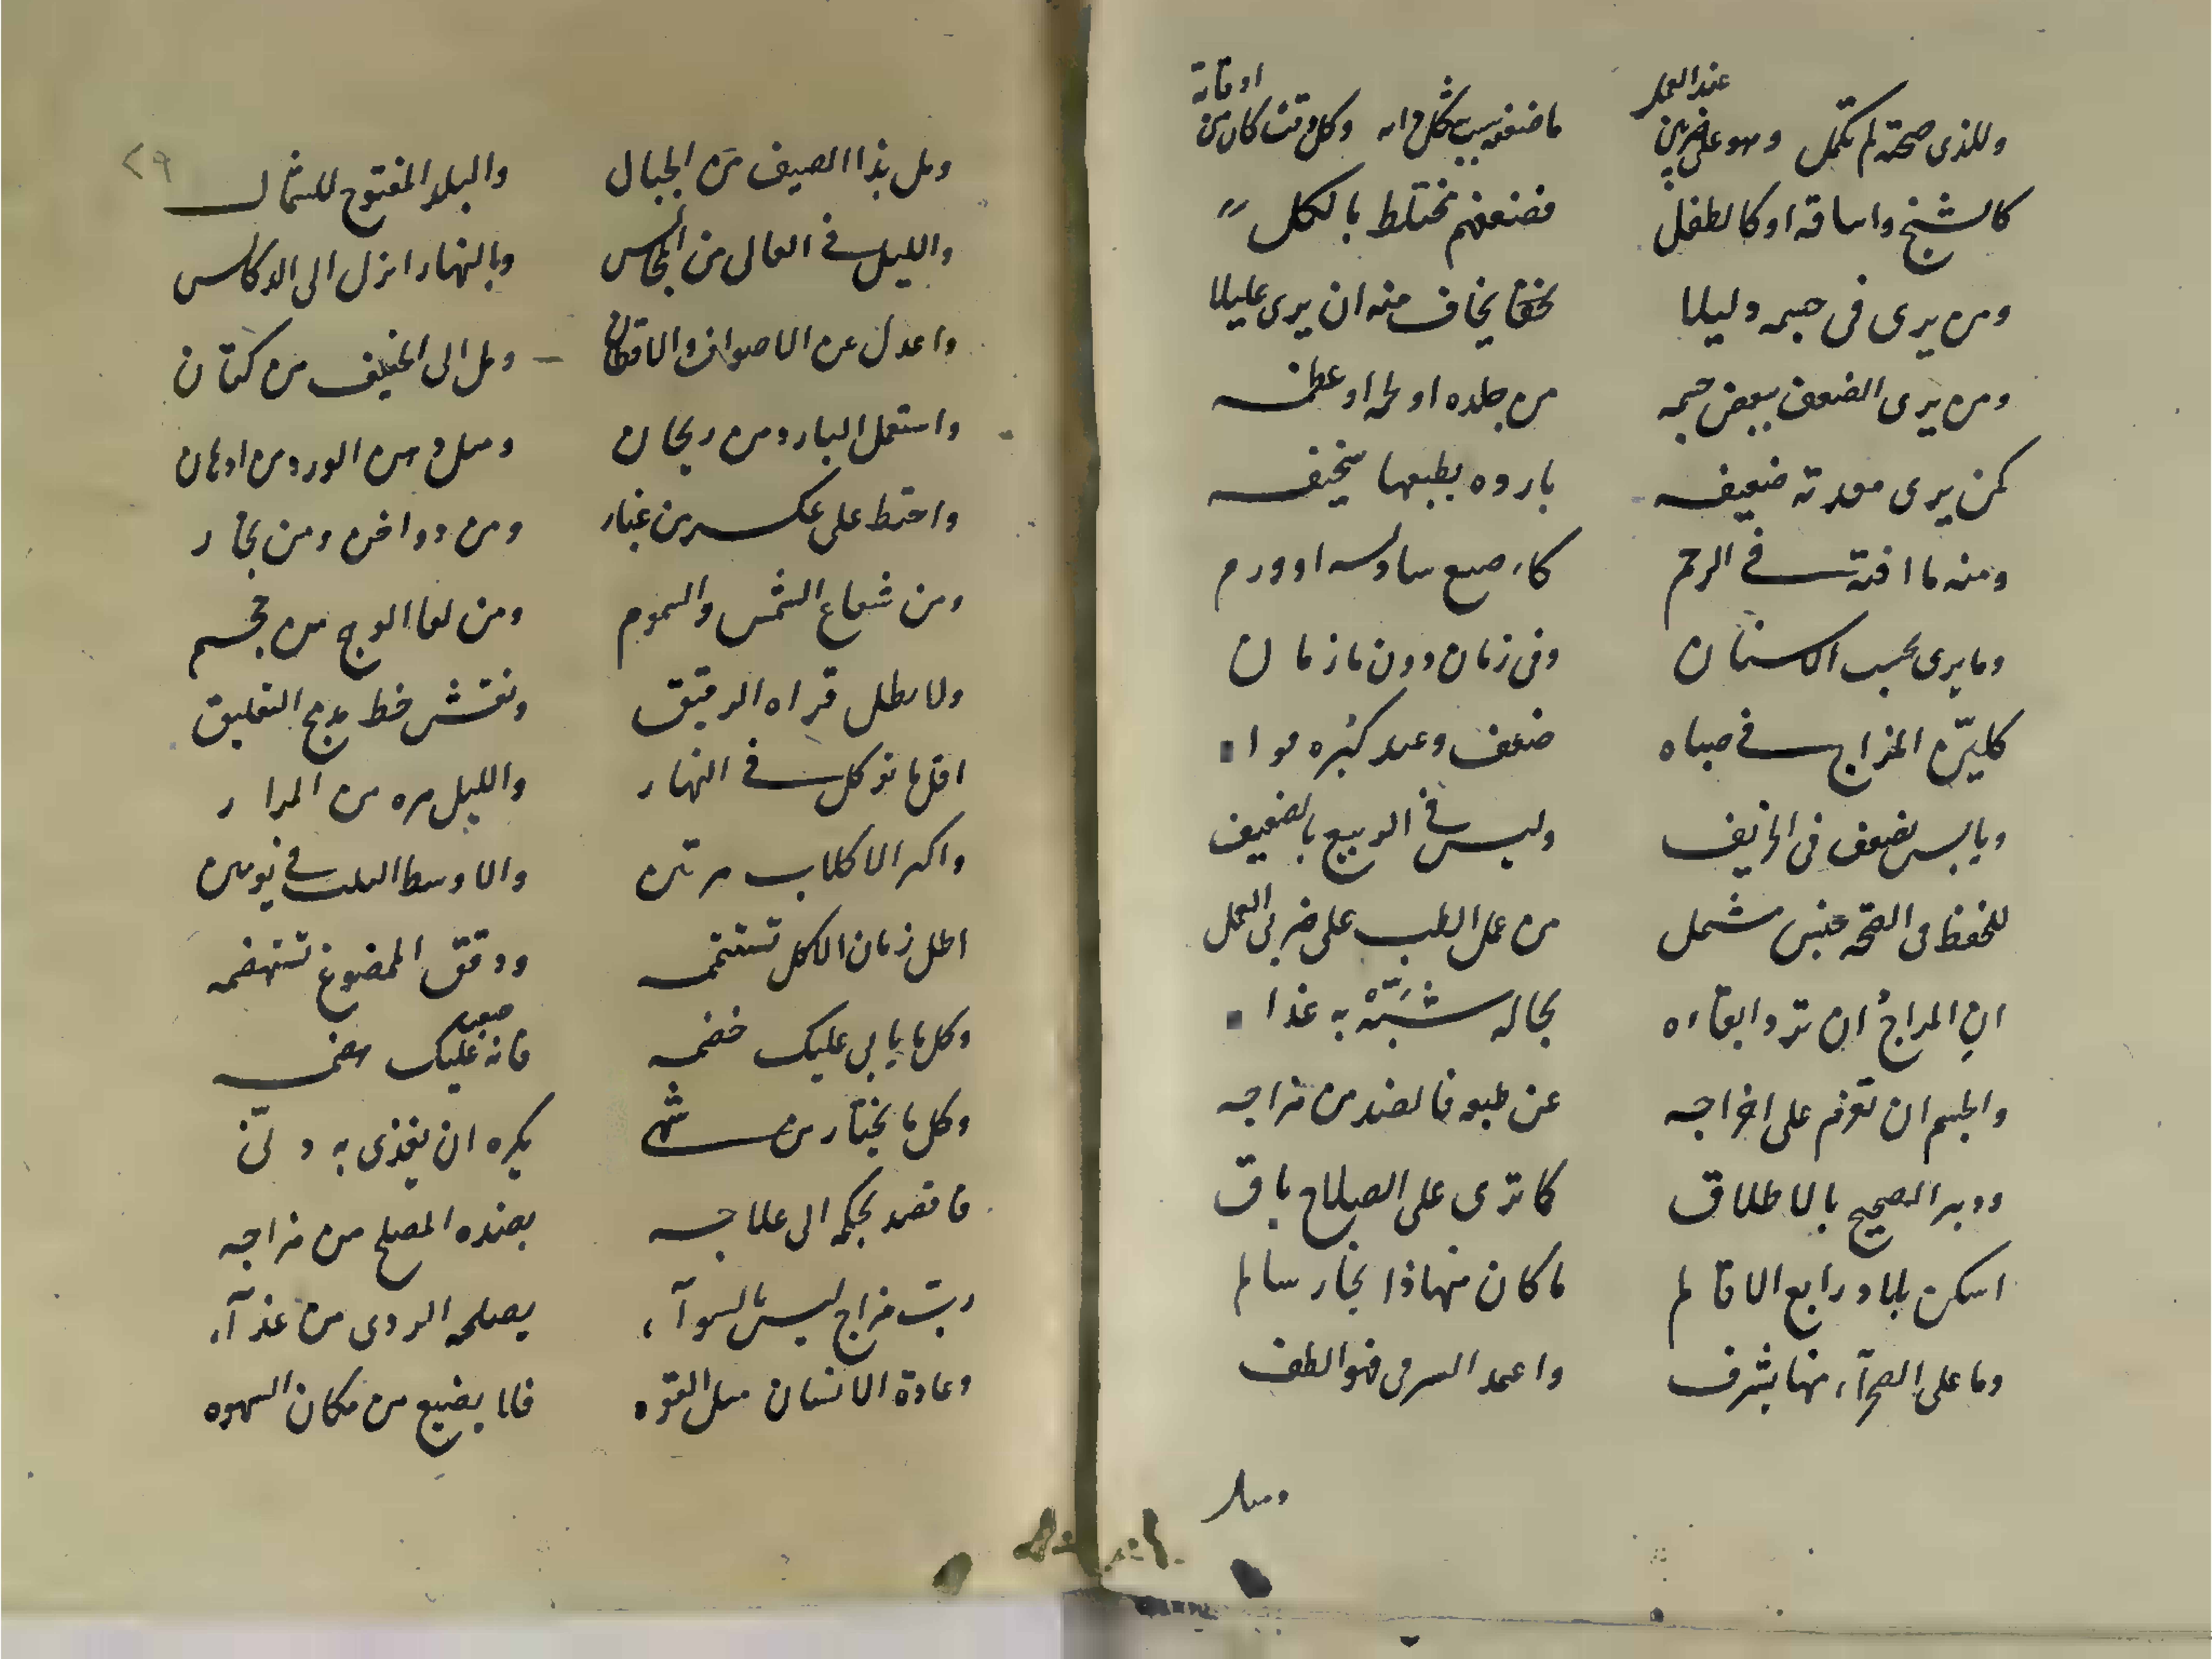 وللذى صحته لم تكمل وهو على ضربين عند العمل ما ضعفه وكل وقت كان من اوقاته
كالشيخ والناقه او كالطفل فضعفهم مختلط بالكل
ومن يرى فى جسمه دليلا يخاف منه ان يرى عليلا
ومن يرى الضعف ببعض جسمه من جلده او لحمه او عظمه
كمن يرى معدته ضعيفه بارده بطبعها سخيفه
ومنه ما افته فى الرحم او ورم
وما يرى بحسب الاسنان وفى زمان دون ما زمان
كلين المزاج فى صباه ضعف وعند كبره قواه
ويابس يضعف فى الخريف وليس فى الربيع بالضعيف
للحفظ فى الصحه جنس مشتمل من عمل الطب على ضربى العمل
ان المزاج ان ترد ابقاءه بحاله شبه به غذاه
والجسم ان تعزم على اخراجه عن طبعه فالضد من مزاجه
ودبر الصحيح بالاطلاق كما ترى على الصلاح باق
اسكن بلاد رابع الاقالم ما كان منها ذا بخار سالم
وما على الصحرآء منها يشرف واعمد السرقى فهو الطف
ومل
٢٩
ومل بذا الصيف من الجبال والبلد المفتوح للشمال
والليل فى العالى من المجالس وبالنهار انزل الى
واعدل عن الاصواف والاقطان ومل الى الخفيف من كتان
واستعمل البارد من ريحان ومل دهن الورد من ادهان
واحتط على عكسر من غبار ومن دواخن ومن بخار
ومن شعاع الشمس والسموم ومن لقا الوج من
ولا يطل قراه الرقيق ونقش خط مدمج التعليق
اقل ما توكل فى النهار والليل مره من المرار
واكثر الاكلات مرتين والاوسط الثلث فى يومين
اطل زمان الاكل تستتمه ودقق الممضوغ تستهضمه
وكل ما يابى عليك خضمه فانه عليك صعب هضمه
وكل ما يختار من شهى يكره ان يغذى به دنى
فاقصد بحكمه الى علاجه بضده المصلح من مزاجه
رب مزاج ليس بالسوآء يصلحه الردى من غذآء
وعادة الانسان مثل القوه فلا يضيع من مكان الشهوه